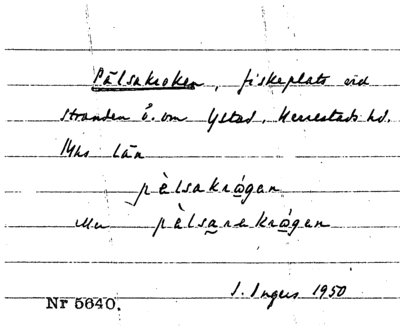 Pålsakroken, fiskeplats vid
stranden ö. om Ystad, Herrestads hd.
Mhs län
pèlsakrógen
eller pèlsarekrógen
I. Ingers 1950
Nr 5640.